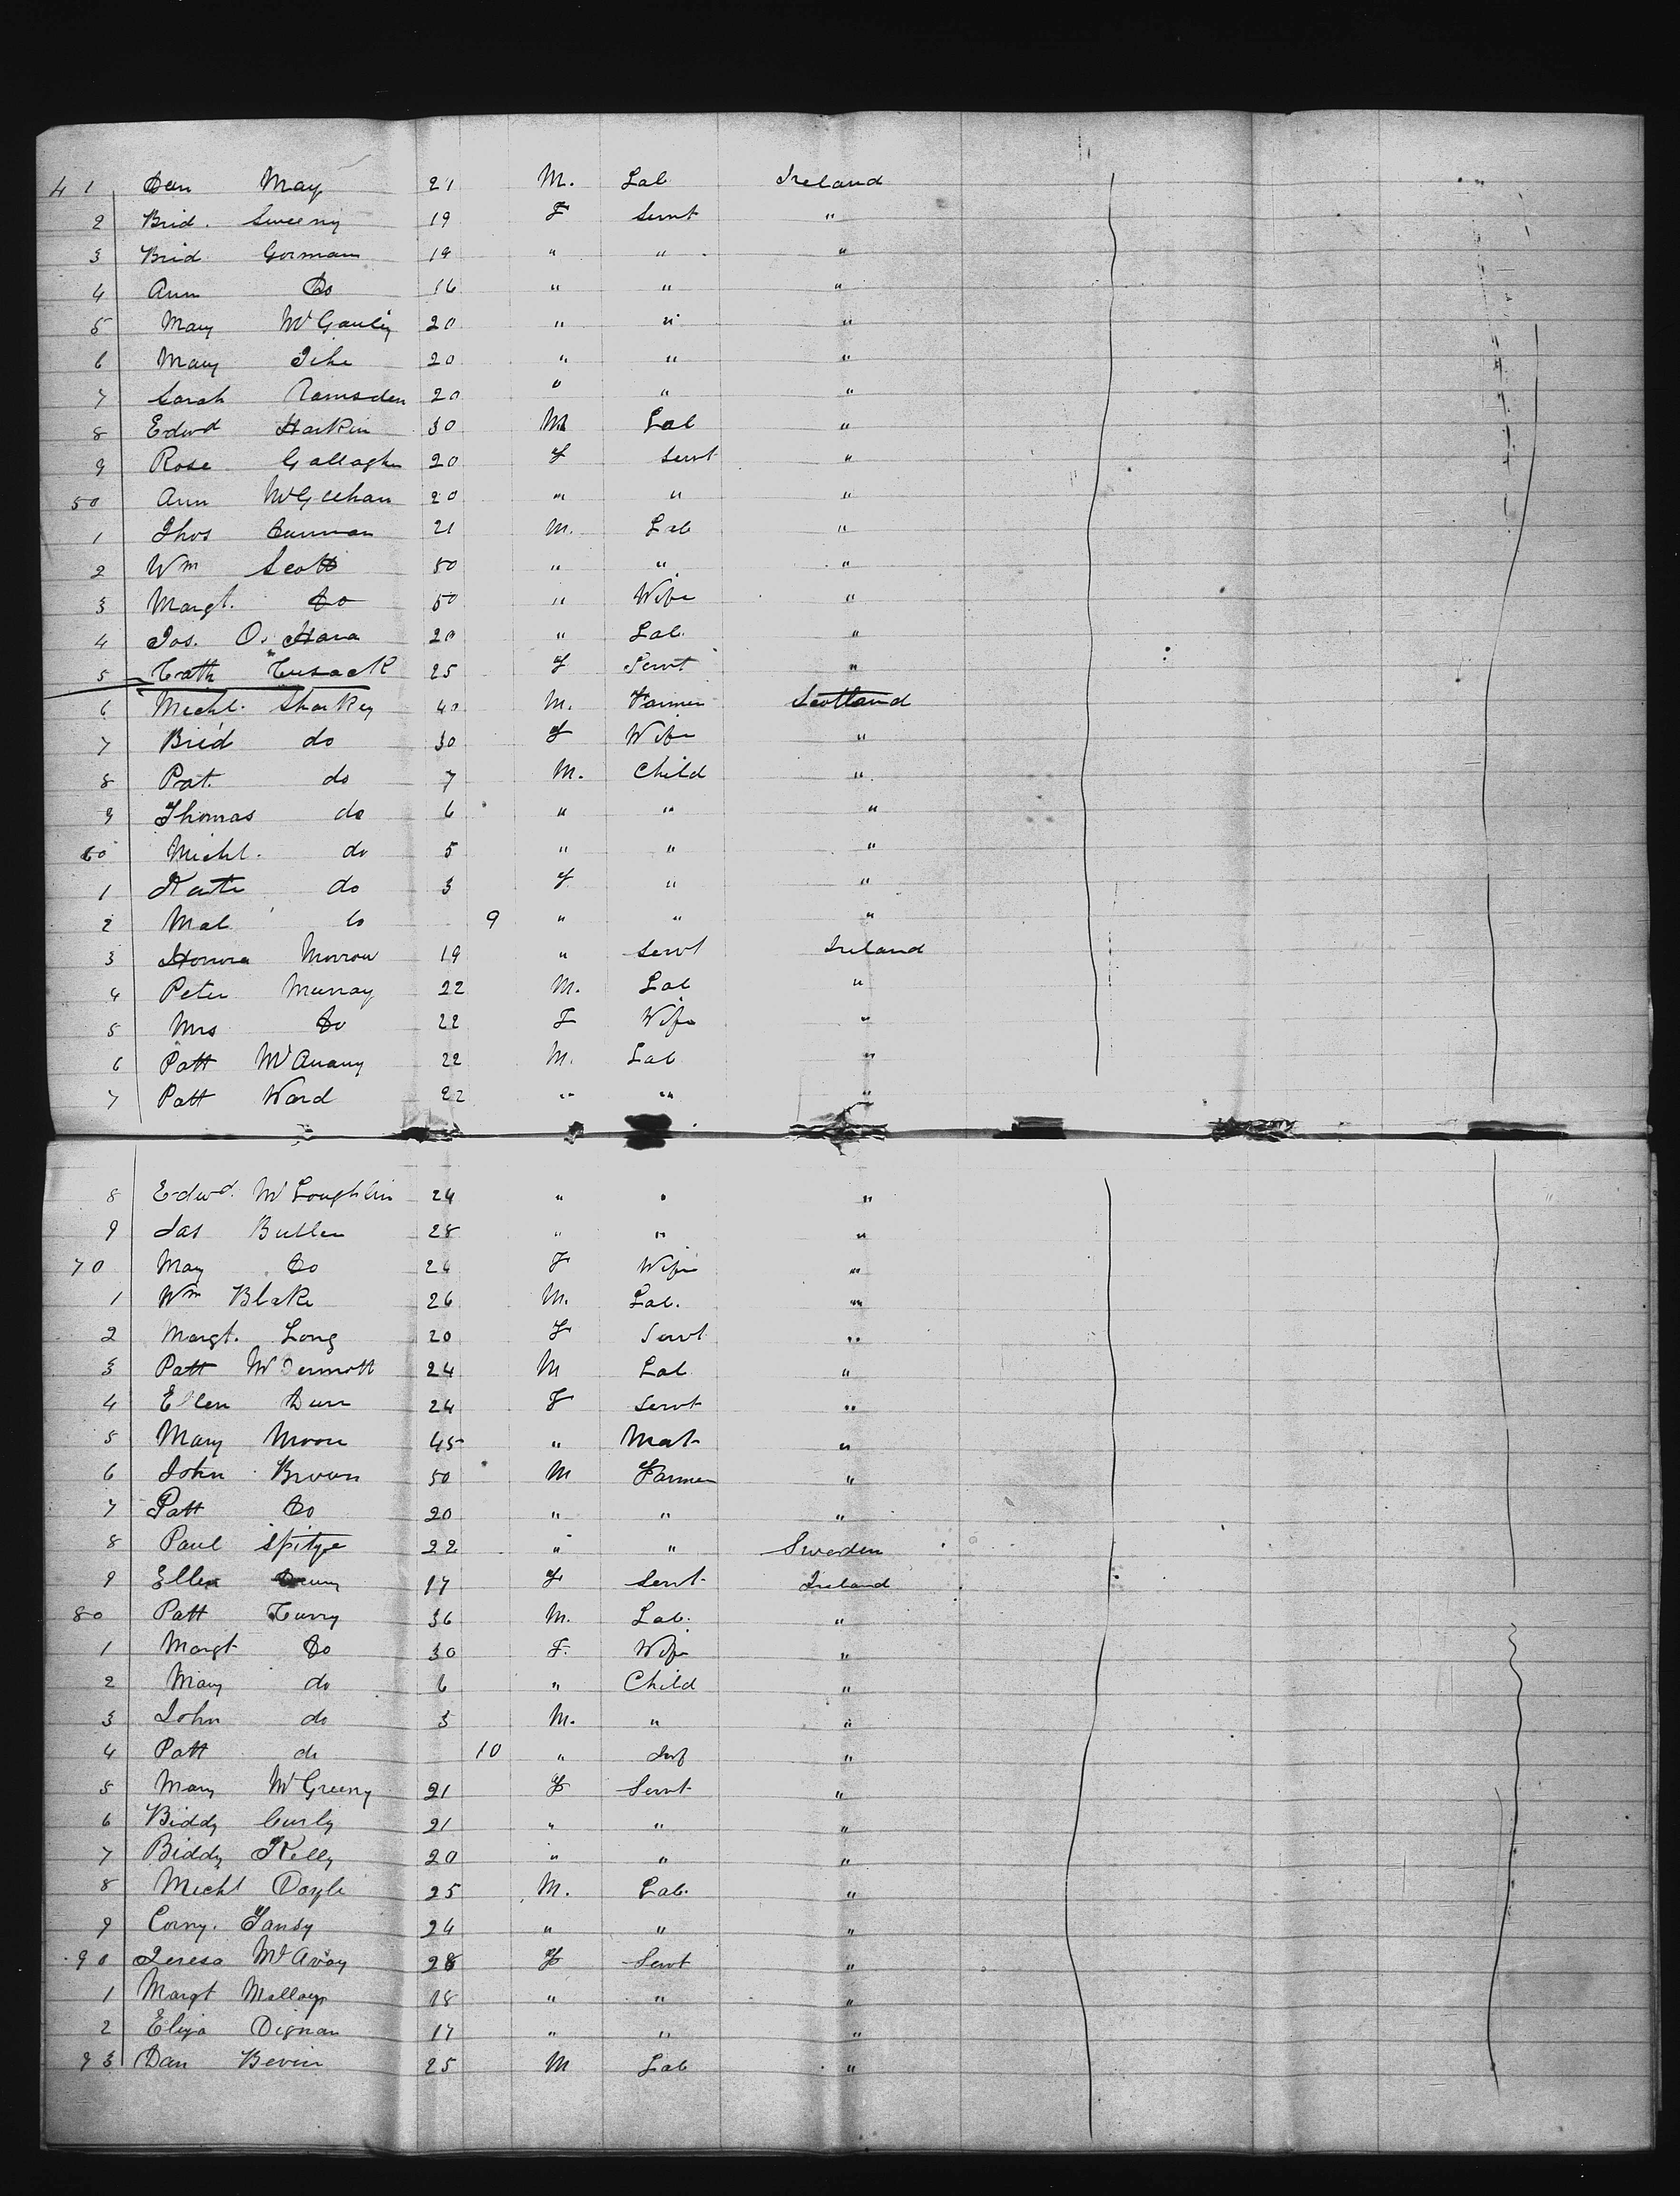 41 Dan May 21 M. Lab Ireland
2 Brid. Sweeny 19 F Servt "
3 Brid Gorman 19 " " "
4 Ann Do 16 " " "
5 Mary McGauley 20 " " "
6 Mary 20 " " "
7 Sarah Ramsden 20 " " "
8 Edwd Harkin 30 M Lab "
9 Rose Gallagher 20 F Servt "
50 Ann McGeehan 20 " " "
1 Thos 21 M. Lab "
2 Wm Scott 50 " " "
3 Margt. Do 50 " Wife "
4 Jos. O. Hara 20 " Lab. "
5 Cath Cusack 25 F Servt "
6 Michl. Sharkey 40 M. Farmer Scotland
7 Brid do 30 F Wife "
8 Pat. do 7 M. Child "
9 Thomas do 6 " " "
60 Michl. do 5 " " "
1 Kate do 3 F " "
2 Mal do 9 " " "
3 Honora Morrow 19 " Servt Ireland
4 Peter Murray 22 M. Lab "
5 Mrs Do 22 F Wife "
6 Patt 22 M. Lab "
7 Patt Ward 22 " " "
8 Edwd. McLoughlin 24 " " "
9 Jas Butler 28 " " "
70 May Do 26 F Wife "
1 Wm Blake 26 M. Lab. "
2 Margt. Long 20 F Servt "
3 Patt McDermott 24 M Lab "
4 Ellen Dunn 24 F Servt "
5 Mary Moore 45 " Mat "
6 John Brown 50 M Farmer "
7 Patt Do 20 " " "
8 Paul Spitze 22 " " Sweden
9 Ellen 17 F Servt Ireland
80 Patt Curry 36 M. Lab. "
1 Margt Do 30 F. Wife "
2 Mary do 6 " Child "
3 John do 3 M. " "
4 Patt do 10 " Inf "
5 Mary McGreevy 21 F Servt "
6 Biddy Curly 21 " " "
7 Biddy Kelly 20 " " "
8 Michl Doyle 25 M. Lab. "
9 Corny. Tansy 24 " " "
90 Teresa McAvoy 28 F Servt "
1 Margt Malloy 18 " " "
2 Eliza Dignan 17 " " "
93 Dan Bevin 25 M Lab "